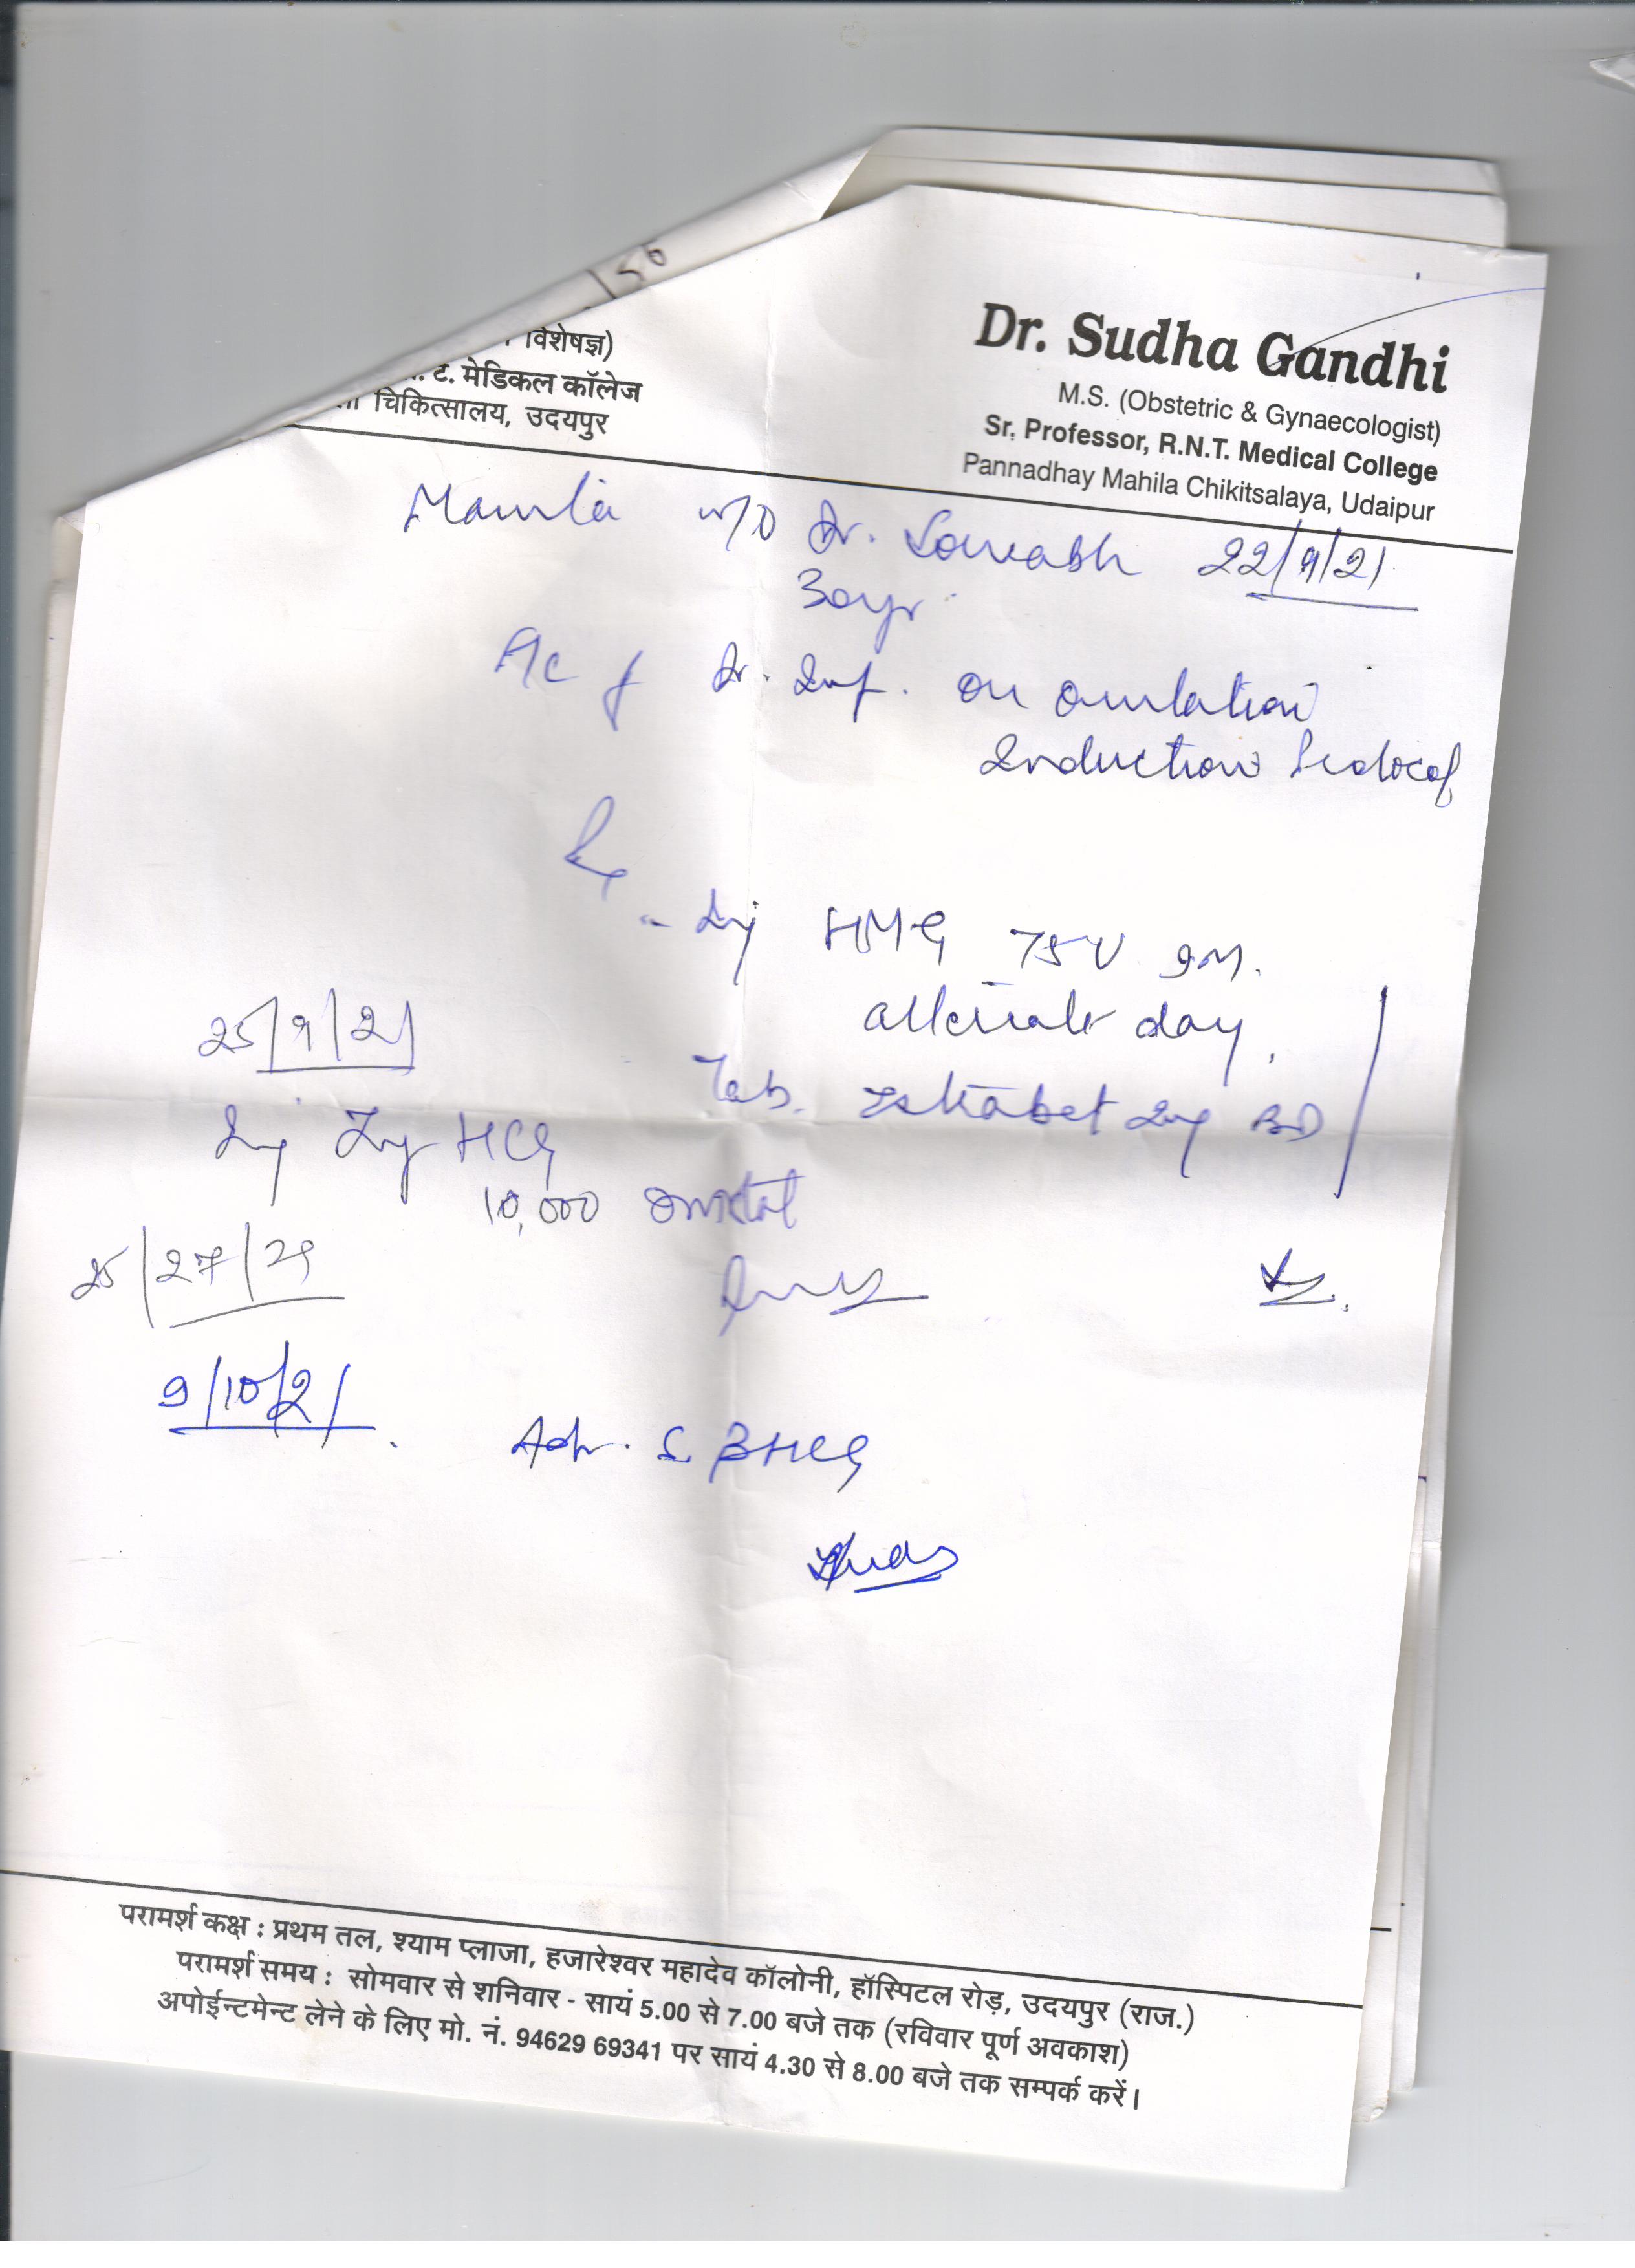 150
विशेषज्ञ)
ट. मेडिकल कॉलेज
चिकित्सालय, उदयपुर
Dr. Sudha Gandhi
M.S. (Obstetric & Gynaecologist)
Sr. Professor, R.N.T. Medical College
Pannadhay Mahila Chikitsalaya, Udaipur
w/o Dr. Sourabh 22/9/21
30yr
Inf. on ovulation
Induction Protocol
Rx
- Inj HMG 75U IM.
alternate day.
25/9/21
Tab. BD
Inj HCG
10,000
25/27/29
9/10/21.
Adv. S. BHCG
परामर्श कक्ष : प्रथम तल, श्याम प्लाजा, हजारेश्वर महादेव कॉलोनी, हॉस्पिटल रोड़, उदयपुर (राज.)
परामर्श समय : सोमवार से शनिवार - सायं 5.00 से 7.00 बजे तक (रविवार पूर्ण अवकाश)
अपोईन्टमेन्ट लेने के लिए मो. नं. 94629 69341 पर सायं 4.30 से 8.00 बजे तक सम्पर्क करें।